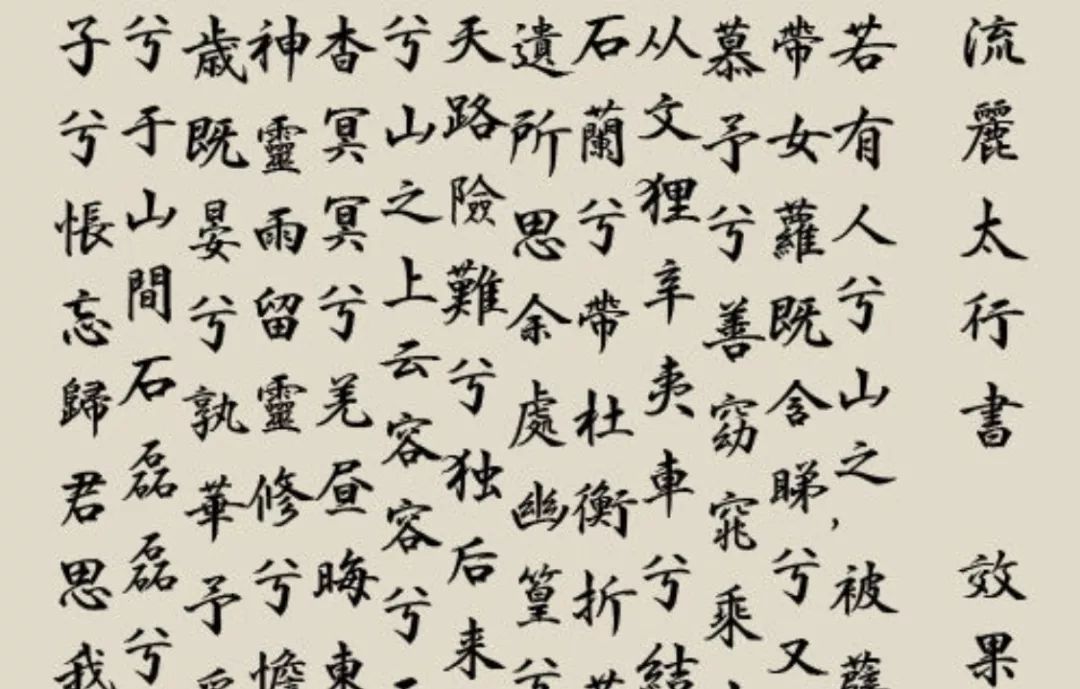 流麗太行書 效果
若有人兮山之,被
帶女蘿既含睇兮又
慕予兮善窈窕乘
从文狸辛夷車兮結
石蘭兮帶杜衡折
遺所思余處幽篁兮
天路險難兮独后来
兮山之上云容容兮
杳冥冥兮羌昼晦東
神靈雨留靈修兮憺
歳既晏兮孰華予
兮于山間石磊磊兮
子兮悵忘歸君思我